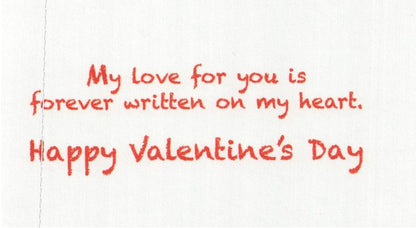 My love for you is
forever written on my heart.
Happy Valentine's Day